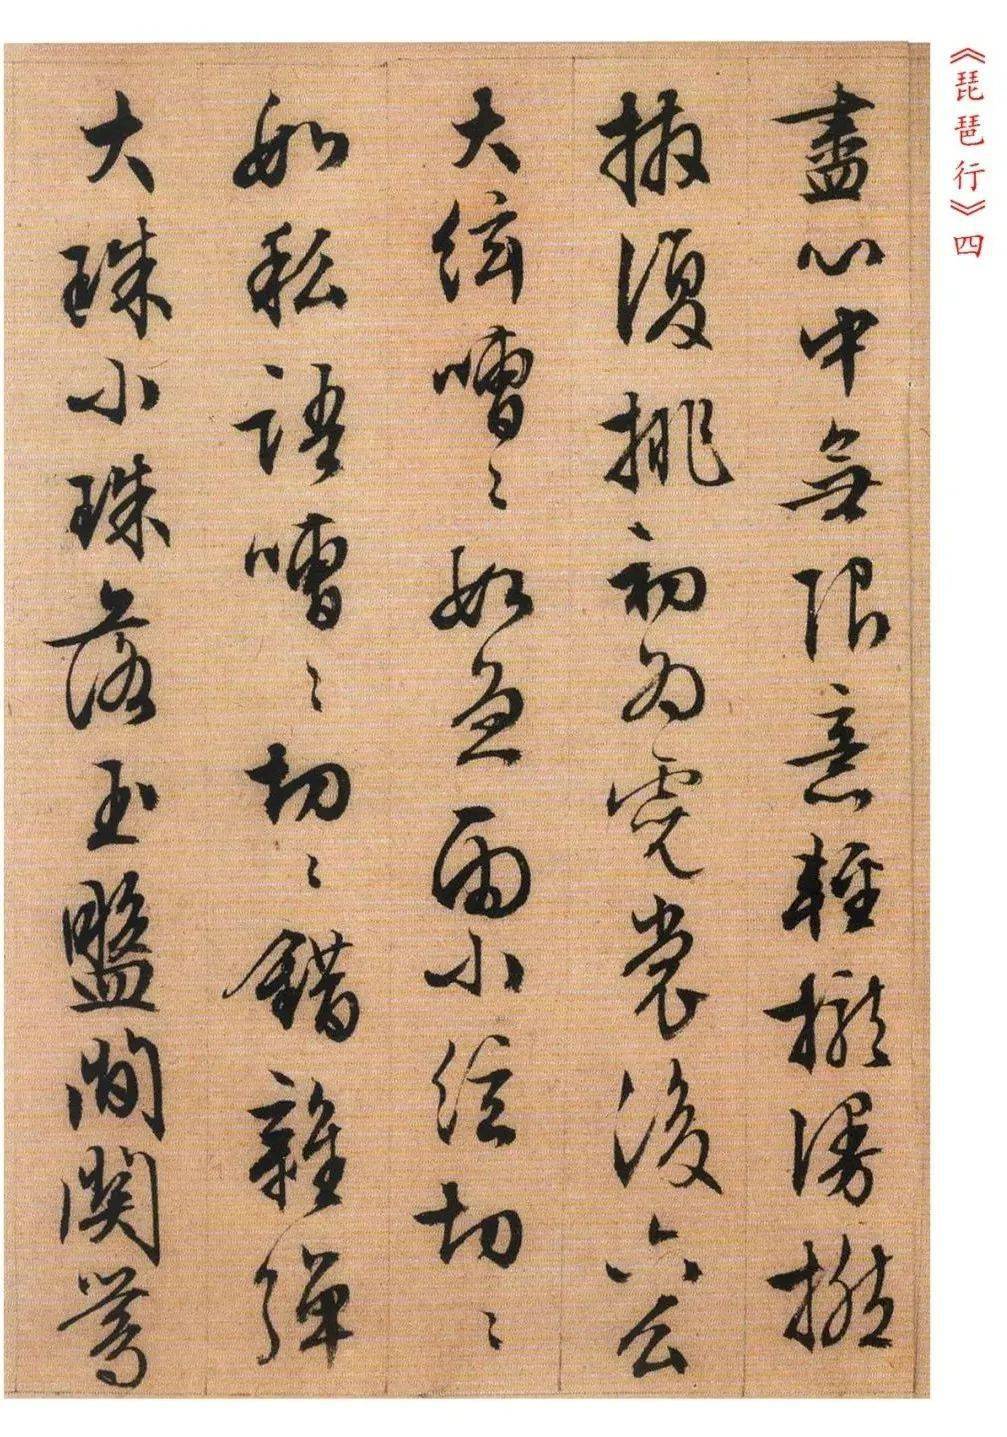 《琵琶行》四
盡心中無限意輕攏慢撚
抹復挑初為霓裳後六么
大絃嘈〻如急雨小絃切〻
如私語嘈〻切〻錯雜彈
大珠小珠落玉盤間關鶯